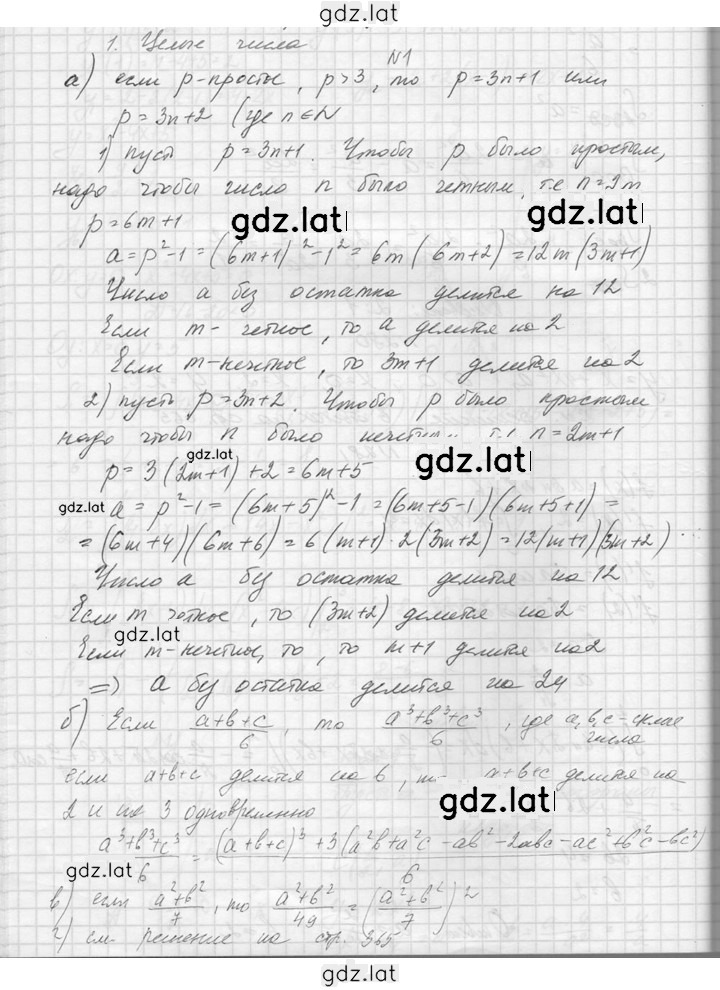 gdz.lat
1. Целые числа
N1
а) если p-простое, p>3, то p=3n+1 или
p=3n+2 (где n∈N
1) пусть p=3n+1. Чтобы p было простым,
надо чтобы число n было четным, т.е n=2m
p=6m+1
gdz.lat
gdz.lat
a=p²-1=(6m+1)²-1²=6m(6m+2)=12m(3m+1)
Число a без остатка делится на 12
Если m-четное, то a делится на 2
Если m-нечетное, то 3m+1 делится на 2
2) пусть p=3n+2. Чтобы p было простым
надо чтобы n было n=2m+1
gdz.lat
p=3(2m+1)+2=6m+5
gdz.lat
gdz.lat a=p²-1=(6m+5)²-1=(6m+5-1)(6m+5+1)=
=(6m+4)(6m+6)=6(m+1)·2(3m+2)=12(m+1)(3m+2)
Число a без остатка делится на 12
Если m четное, то (3m+2) делится на 2
gdz.lat
Если m-нечетное, то, то m+1 делится на 2
=> a без остатка делится на 24
б) Если (a+b+c)/6, то (a³+b³+c³)/6, где a,b,c-
числа
если a+b+c делится на 6, a+b+c делится на
gdz.lat
2 и на 3 одновременно
(a³+b³+c³)/6=((a+b+c)³+3(a²b+a²c-ab²-2abc-ac²+b²c-bc²))/6
gdz.lat
в) если (a²+b²)/7, то (a²+b²)/49=((a²+b²)/7)²
г) см. решение на стр. 365
gdz.lat